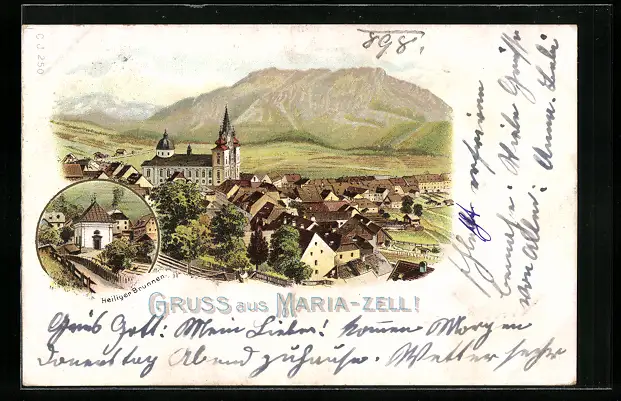 C.J. 250
898.
Heiliger Brunnen.
GRUSS aus MARIA-ZELL!
Grüs Gott! Mein Lieber! kommen Morgen
Donerstag Abend zuhause. Wetter sehr
schlecht
Viele Grüsse
von allen: Anna.